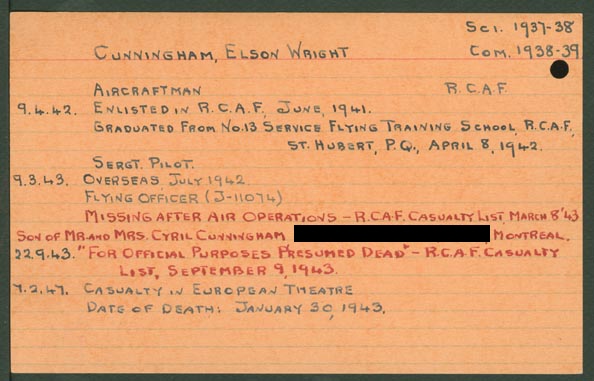 Sci. 1937-38
Cunningham, Elson Wright Com. 1938-39
Aircraftman R.C.A.F.
9.4.42. Enlisted in R.C.A.F. June, 1941.
Graduated From No.13 Service Flying Training School, R.C.A.F.,
St. Hubert, P.Q., April 8, 1942.
Sergt. Pilot.
9.3.43. Overseas, July 1942
Flying Officer (J-11074)
Missing after Air Operations – R.C.A.F. Casualty List, March 8'43
Son of Mr. and Mrs. Cyril Cunningham, Montreal.
22.9.43. "For Official Purposes Presumed Dead" – R.C.A.F. Casualty
List, September 9, 1943.
7.2.47. Casualty in European Theatre
Date of Death: January 30, 1943.